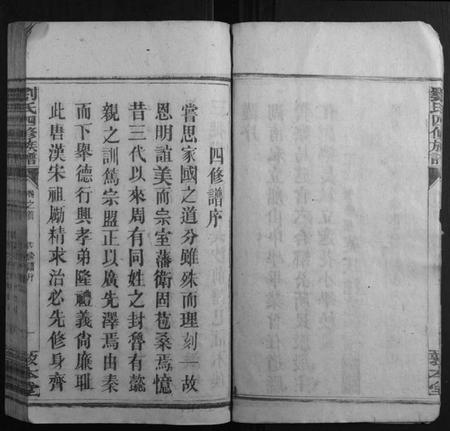 四修譜序
嘗思家國之道分雖殊而理刻一故
恩明誼美而宗室藩衛固苞桑焉憶
昔三代以來周有同姓之封魯有懿
親之訓篤宗盟正以廣先澤焉由秦
而下舉德行興孝弟隆禮義尚廉耻
此唐漢宋祖勵精求治必先修身齊
劉氏四修族譜
卷之首
敦本堂
劉氏四修族譜
敦本堂